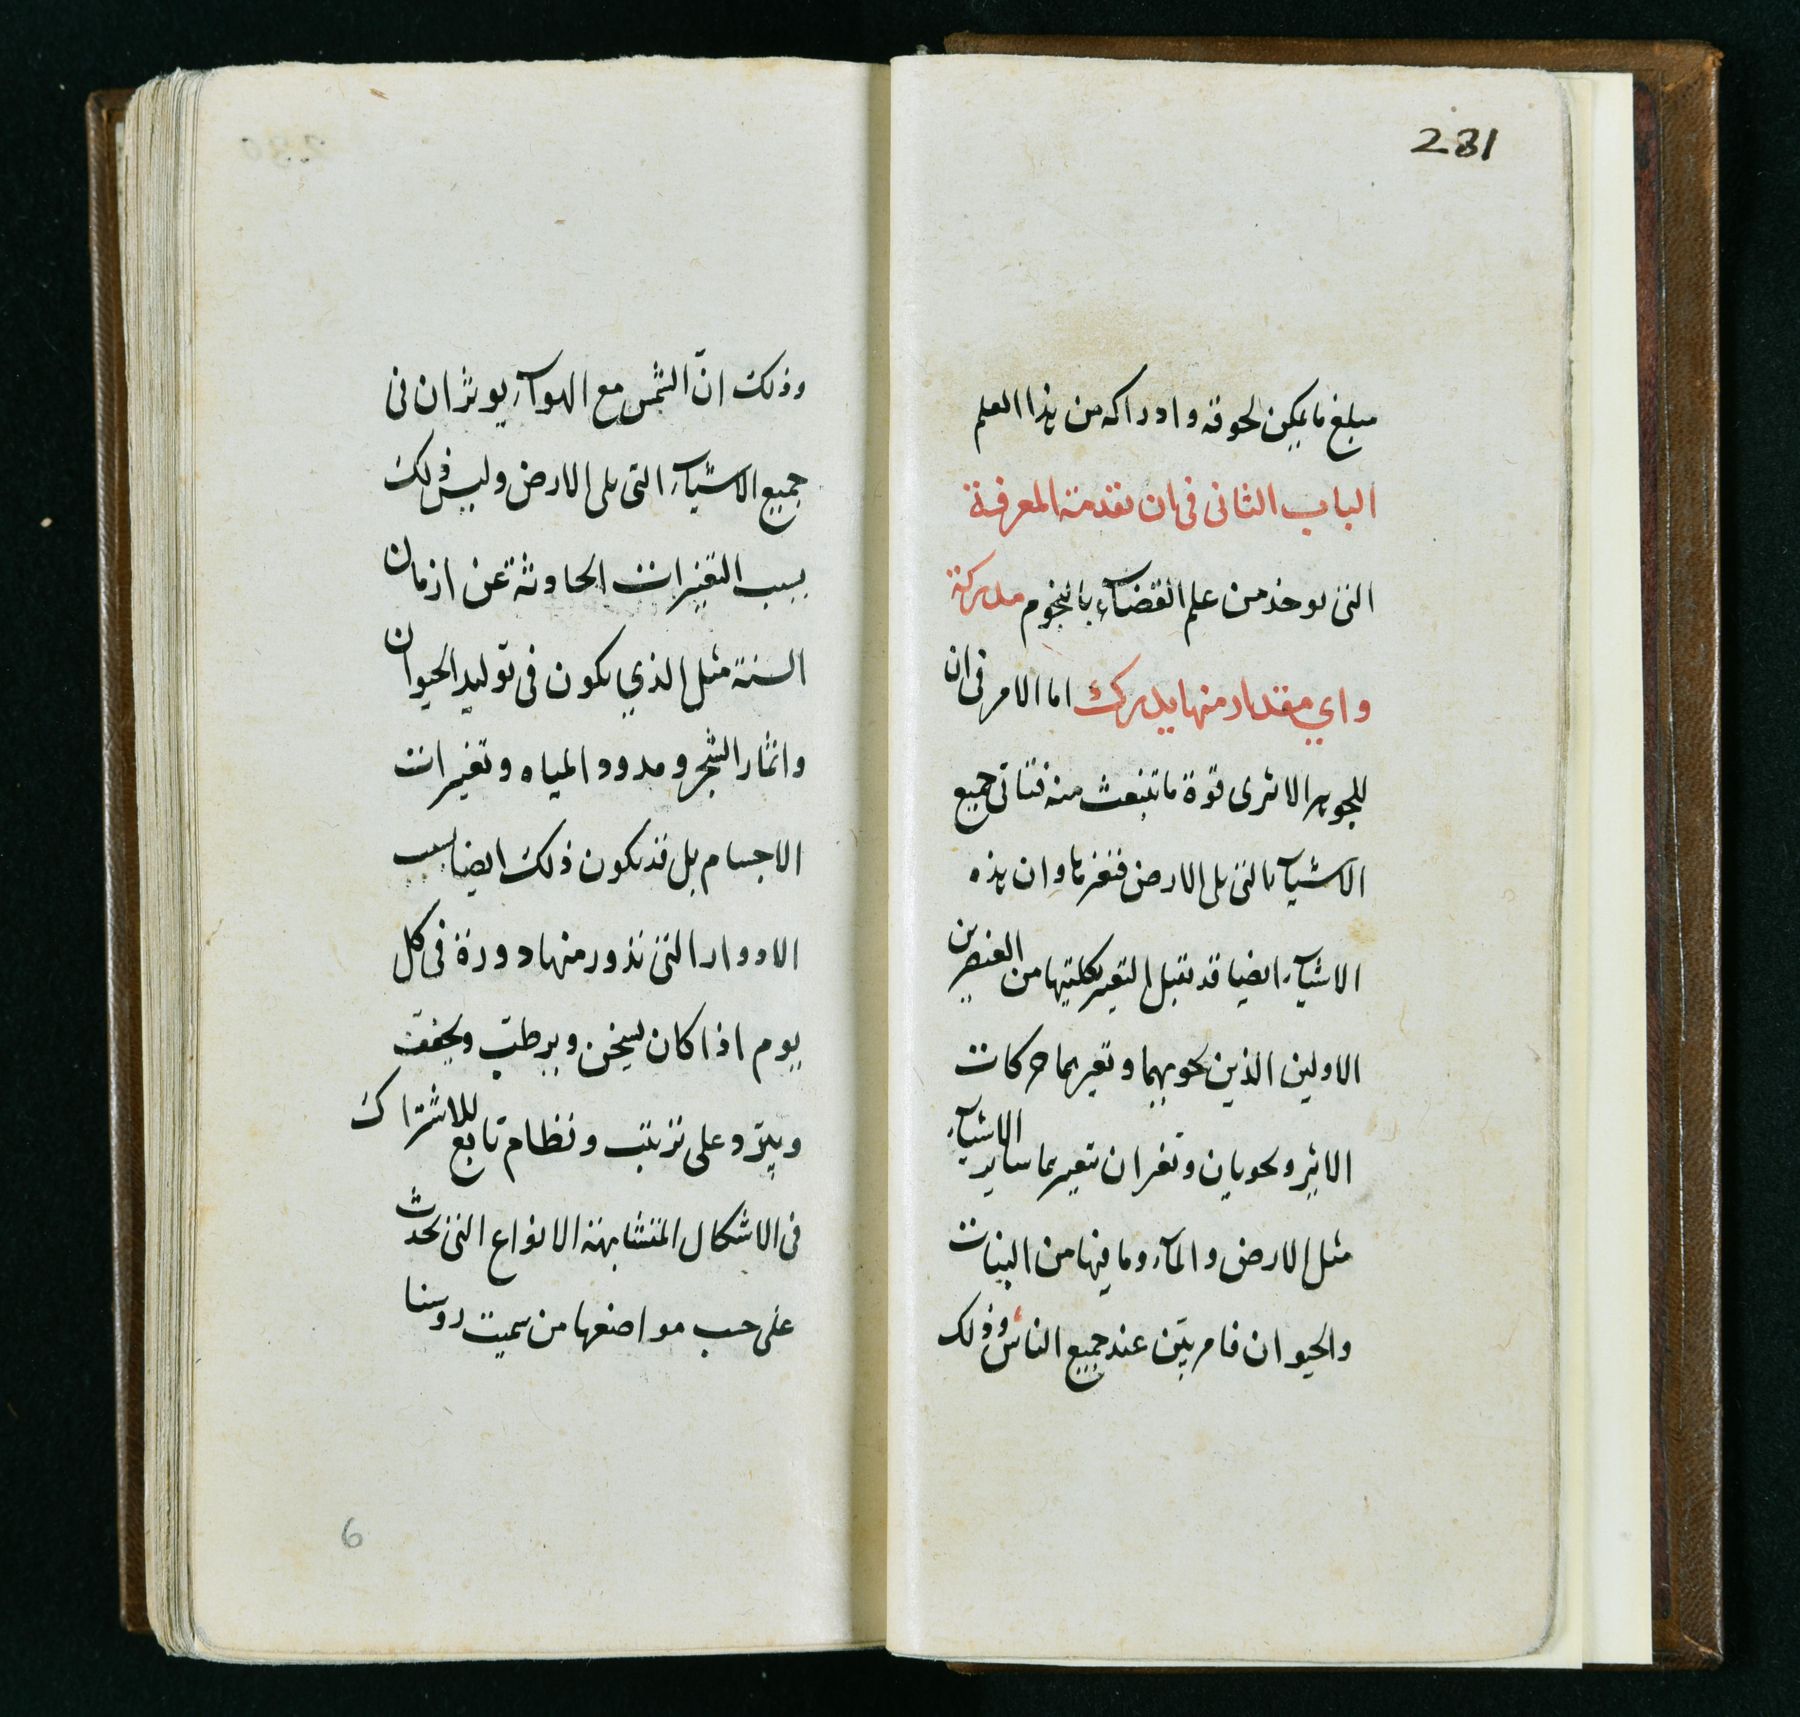 281
مبلغ ما يمكن لحوقه وادراكه من هذا العلم
الباب الثانى فى ان تقدمة المعرفة
التى توخذ من علم القضآء بالنجوم مدركة
واي مقدار منها يدرك اما الامر فى ان
للجوهر الاثرى قوة ما تنبعث منه فتاتى جميع
الاشيآء التى تلى الارض فتغيرها وان هذه
الاشيآء ايضا قد تقبل التغير بكليتها من العنصرين
الاولين الذين يحويهما وتغيرهما حركات
الاثير ويحويان وتغيران بتغيرهما ساير الاشيآء
مثل الارض والمآء وما فيها من النبات
والحيوان فامر بيّن عند جميع الناس وذلك
وذلك انّ الشمس مع الهوآء يوثران فى
جميع الاشيآء التى تلى الارض وليس ذلك
بسبب التغيرات الحادثة عن ازمان
السنة مثل الذي يكون فى توليد الحيوان
واثمار الشجر ومدود المياه وتغيرات
الاجسام بل قد يكون ذلك ايضا بسبب
الادوار التى تدور منها دورة فى كل
يوم اذا كان يسخن ويرطب ويجفف
ويبرّد على ترتيب ونظام تابع للاشتراك
فى الاشكال المتشابهة الانواع التى تحدث
على حسب مواضعها من سميت روسنا
6